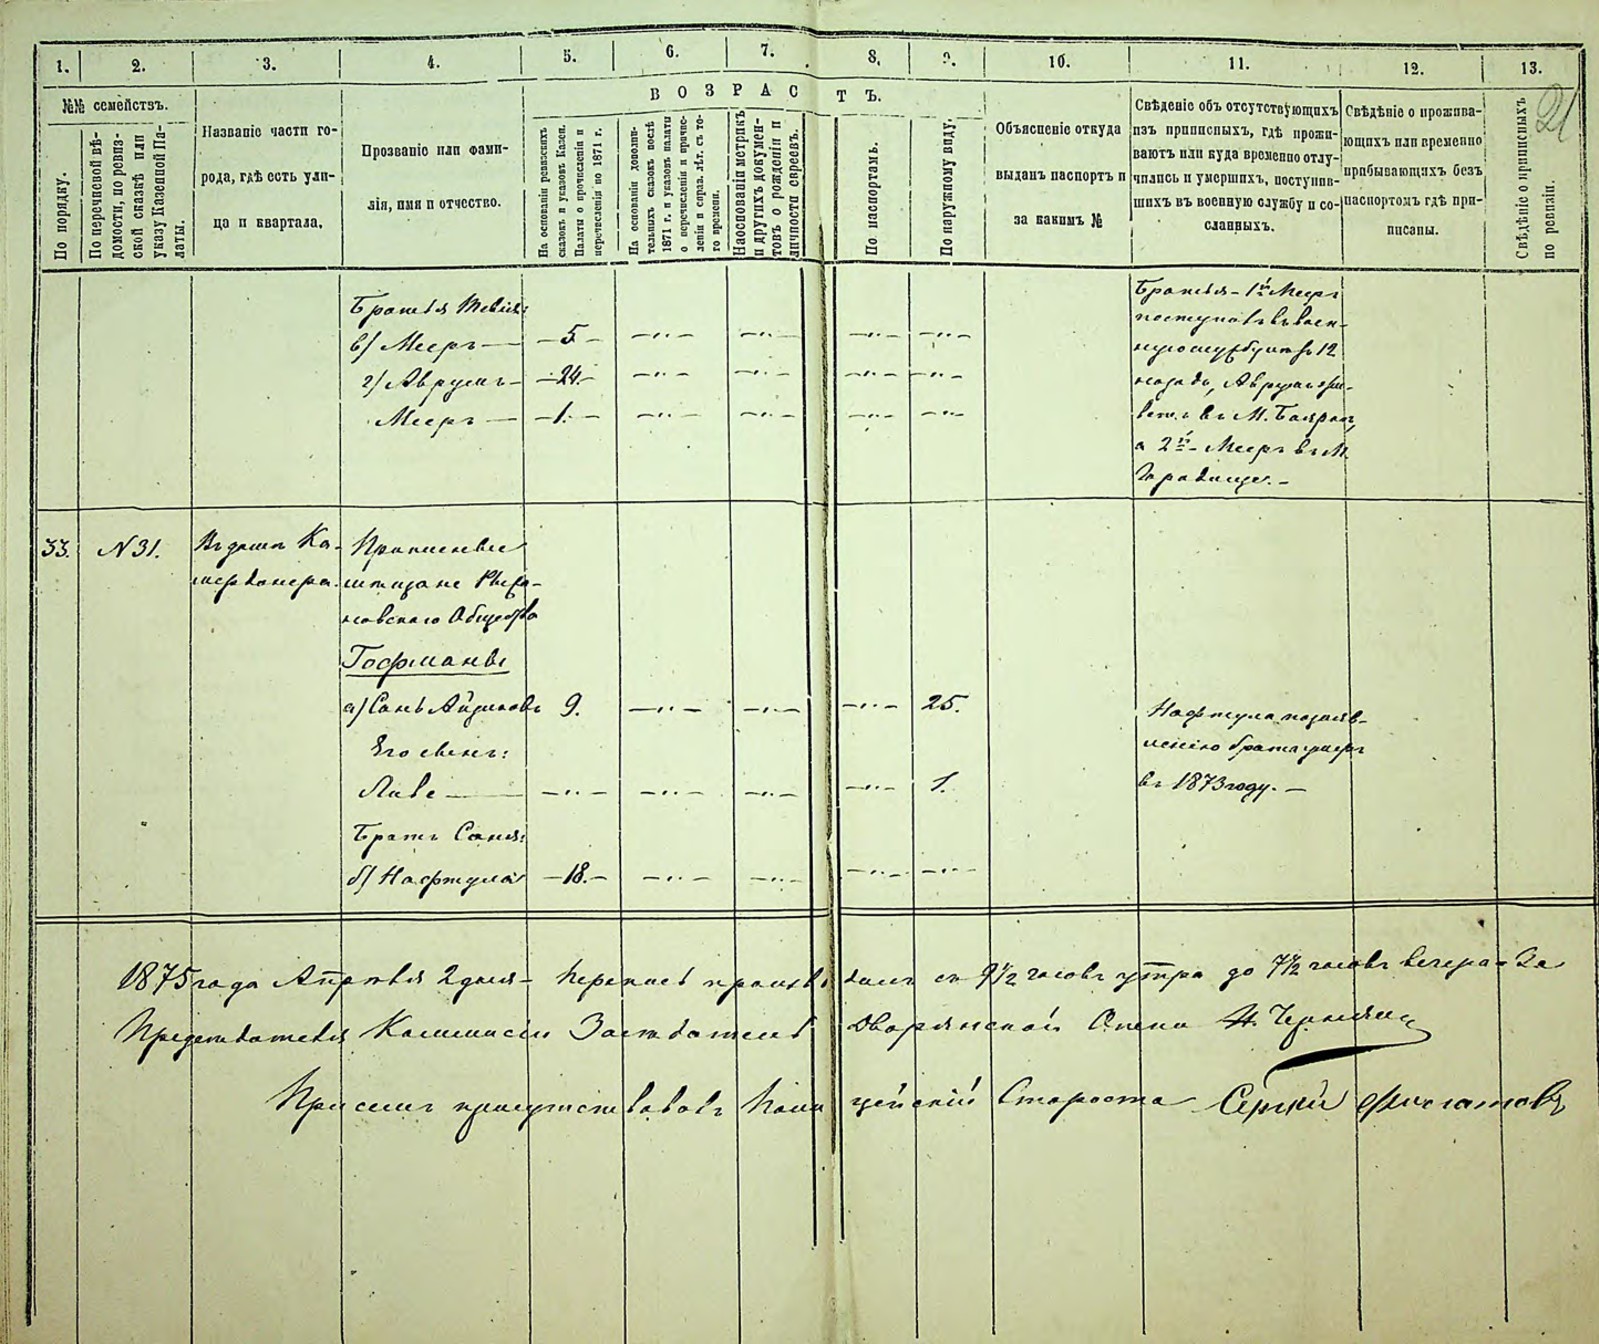 1. 2. 3. 4. 5. 6. 7. 8. 9. 10. 11. 12. 13.
21
№№ семействъ.
По порядку.
По перечневой вѣ-
домости, по ревиз-
ской сказкѣ или
указу Казенной Па-
латы.
Названіе части го-
рода, гдѣ есть ули-
ца и квартала.
Прозваніе или фами-
лія, имя и отчество.
ВОЗРАСТЪ.
На основаніи ревизскихъ
сказокъ и указовъ Казен.
Палаты о причисленіи и
перечисленіи по 1871 г.
На основаніи дополни-
тельныхъ сказокъ послѣ
1871 г. и указовъ палаты
о перечисленіи и причис-
леніи и справ. лѣт. съ то-
го времени.
На основаніи метрикъ
и другихъ докумен-
товъ о рожденіи и
личности евреевъ.
По паспортамъ.
По наружному виду.
Объясненіе откуда
выданъ паспортъ и
за какимъ №
Свѣденіе объ отсутствующихъ
изъ приписныхъ, гдѣ прожи-
ваютъ или куда временно отлу-
чились и умершихъ, поступив-
шихъ въ военную службу и со-
сланныхъ.
Свѣдѣніе о прожива-
ющихъ или временно
прибывающихъ безъ
паспортомъ гдѣ при-
писаны.
Свѣдѣніе о приписныхъ
по ревизіи.
Братья Тевія:
в) Мееръ — 5. —
г) Аврумъ — 24. —
Мееръ — 1. —
Братья — 1й Мееръ
поступилъ въ воен-
ную службу лѣтъ 12
назадъ, Аврумъ жи-
ветъ въ М. Боярка,
а 2й Мееръ въ М.
Городище. —
33. N 31. Въ домѣ Ка-
мердинера.
Приписные
мѣщане Рыжа-
новскаго Общества
Гофманы
а) Сань Айзиковъ 9. 25.
Его сынъ:
Лейбе — 1.
Братъ Саня:
б) Нафтула — 18. —
Нафтула по заяв-
ленію брата умеръ
въ 1873 году. —
1875 года Апрѣля 2 дня — перепись производилъ съ 9 1/2 часовъ утра до 7 1/2 часовъ вечера — За
Предсѣдателя Коммисіи Засѣдатель Дворянской Опеки Н. Чернявск
При семъ присутствовалъ Полицейскій Староста Сергѣй Филатовъ